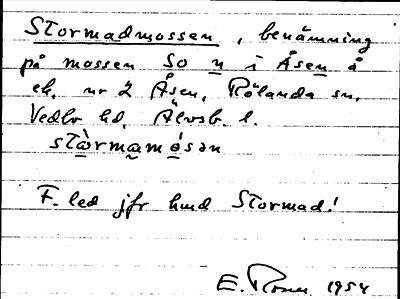 Stormadmossen, benämning
på mossen SO n i Åsen å
ek. nr 2 Åsen, Rölanda sn,
Vedbo hd, Älvsb. l.
stàrmamósən
F. led jfr hmd Stormad!
E. 1954